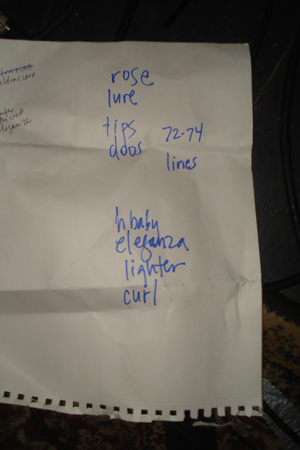 rose
lure
tips 72-74
doos lines
'n baby
eleganza
lighter
curl